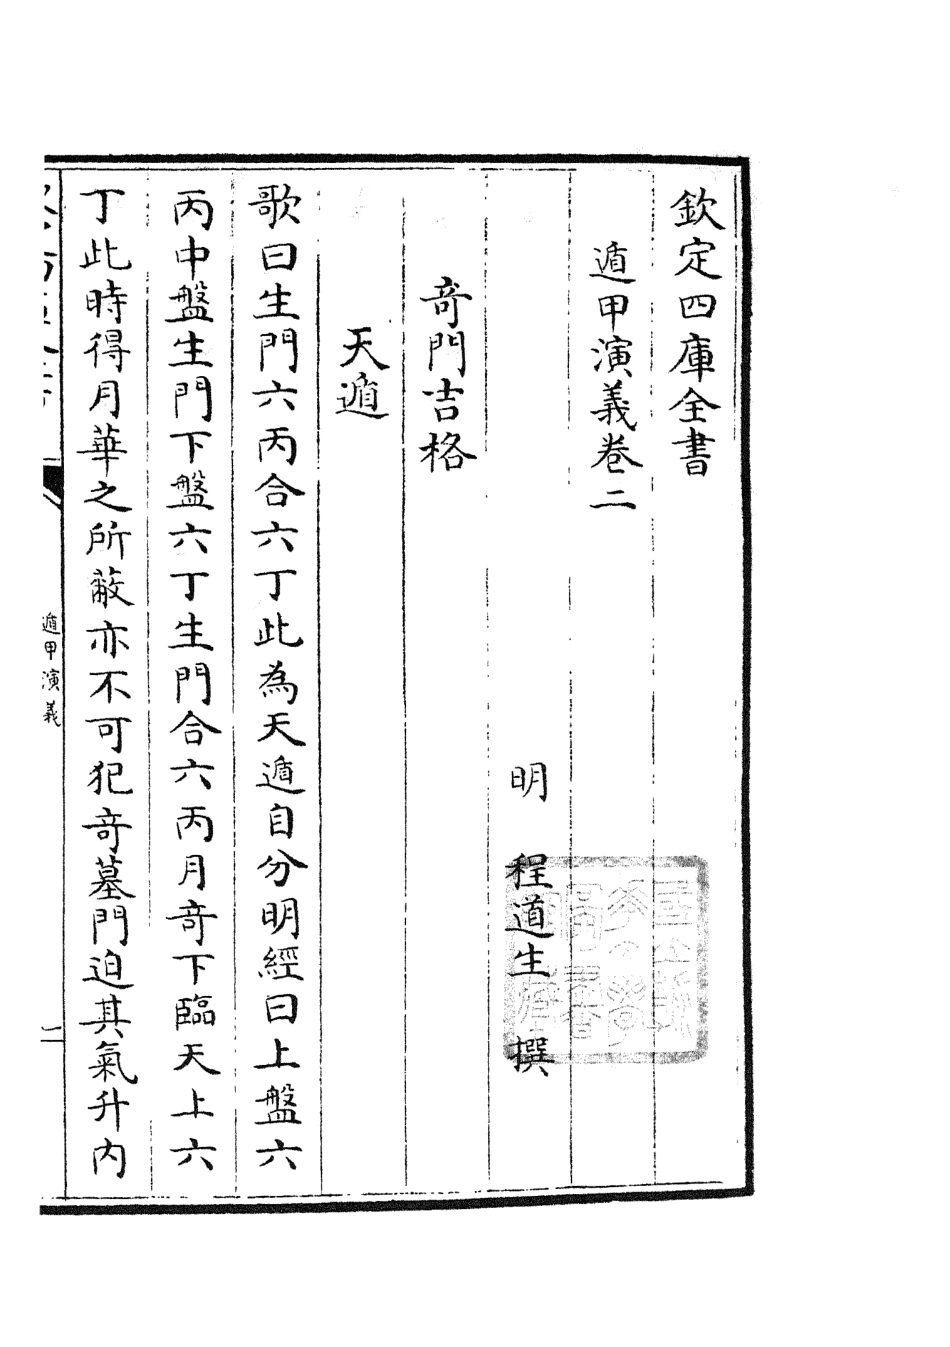 欽定四庫全書
遁甲演義卷二
明 程道生 撰
奇門吉格
天遁
歌曰生門六丙合六丁此為天遁自分明經曰上盤六
丙中盤生門下盤六丁生門合六丙月奇下臨天上六
丁此時得月華之所蔽亦不可犯奇墓門迫其氣升内
遁甲演義